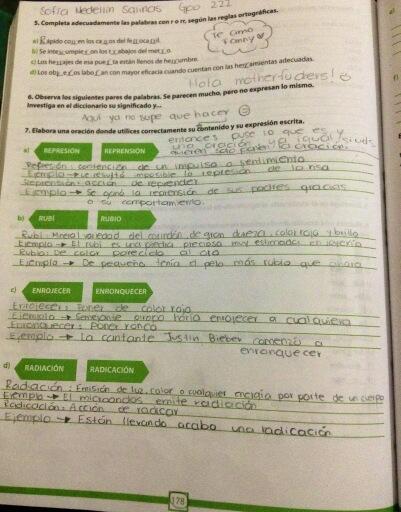 Sofia Medellin Salinas Gpo 222
5. Completa adecuadamente las palabras con r o rr, según las reglas ortográficas.
a) Rápido corren en los carros del ferrocarril.
b) Se interrumpieron los trabajos del metro.
c) Los herrajes de esa puerta están llenos de herrumbre.
d) Los obreros laboran con mayor eficacia cuando cuentan con las herramientas adecuadas.
Te amo
Fanny
Hola motherfuckers!
6. Observa los siguientes pares de palabras. Se parecen mucho, pero no expresan lo mismo.
Investiga en el diccionario su significado y...
Aqui ya no supe que hacer
7. Elabora una oración donde utilices correctamente su contenido y su expresión escrita.
entonces puse lo que es y
una oración ya igual si uds
quieren solo ponen la oración.
a) REPRESIÓN REPRENSIÓN
Represión: contención de un impulso o sentimiento
Ejemplo → Le resultó imposible la represión de la risa
Reprensión: acción de reprender
Ejemplo → Se ganó la reprensión de sus padres gracias
a su comportamiento.
b) RUBÍ RUBIO
Rubí: Mineral variedad del corindón, de gran dureza, color rojo y brillo
Ejemplo → El rubí es una piedra preciosa muy estimada en joyería
Rubio: De color parecido al oro
Ejemplo → De pequeño tenía el pelo más rubio que ahora
c) ENROJECER ENRONQUECER
Enrojecer: Poner de color rojo
Ejemplo → Semejante piropo haría enrojecer a cualquiera
Enronquecer: Poner ronco
Ejemplo → La cantante Justin Bieber comenzó a
enronquecer
d) RADIACIÓN RADICACIÓN
Radiación: Emisión de luz, calor o cualquier energía por parte de un cuerpo
Ejemplo → El microondas emite radiación
Radicación: Acción de radicar
Ejemplo → Están llevando acabo una radicación
178